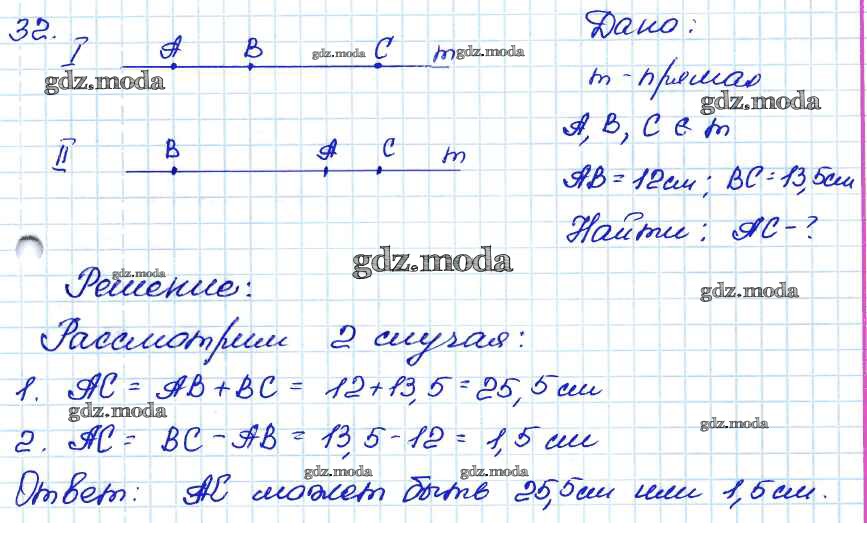 32.
I A B C m
II B A C m
Дано:
m - прямая
A, B, C ∈ m
AB = 12см; BC = 13,5см
Найти: AC - ?
Решение:
Рассмотрим 2 случая:
1. AC = AB + BC = 12 + 13,5 = 25,5 см
2. AC = BC - AB = 13,5 - 12 = 1,5 см
Ответ: AC может быть 25,5см или 1,5см.
gdz.moda
gdz.moda
gdz.moda
gdz.moda
gdz.moda
gdz.moda
gdz.moda
gdz.moda
gdz.moda
gdz.moda
gdz.moda